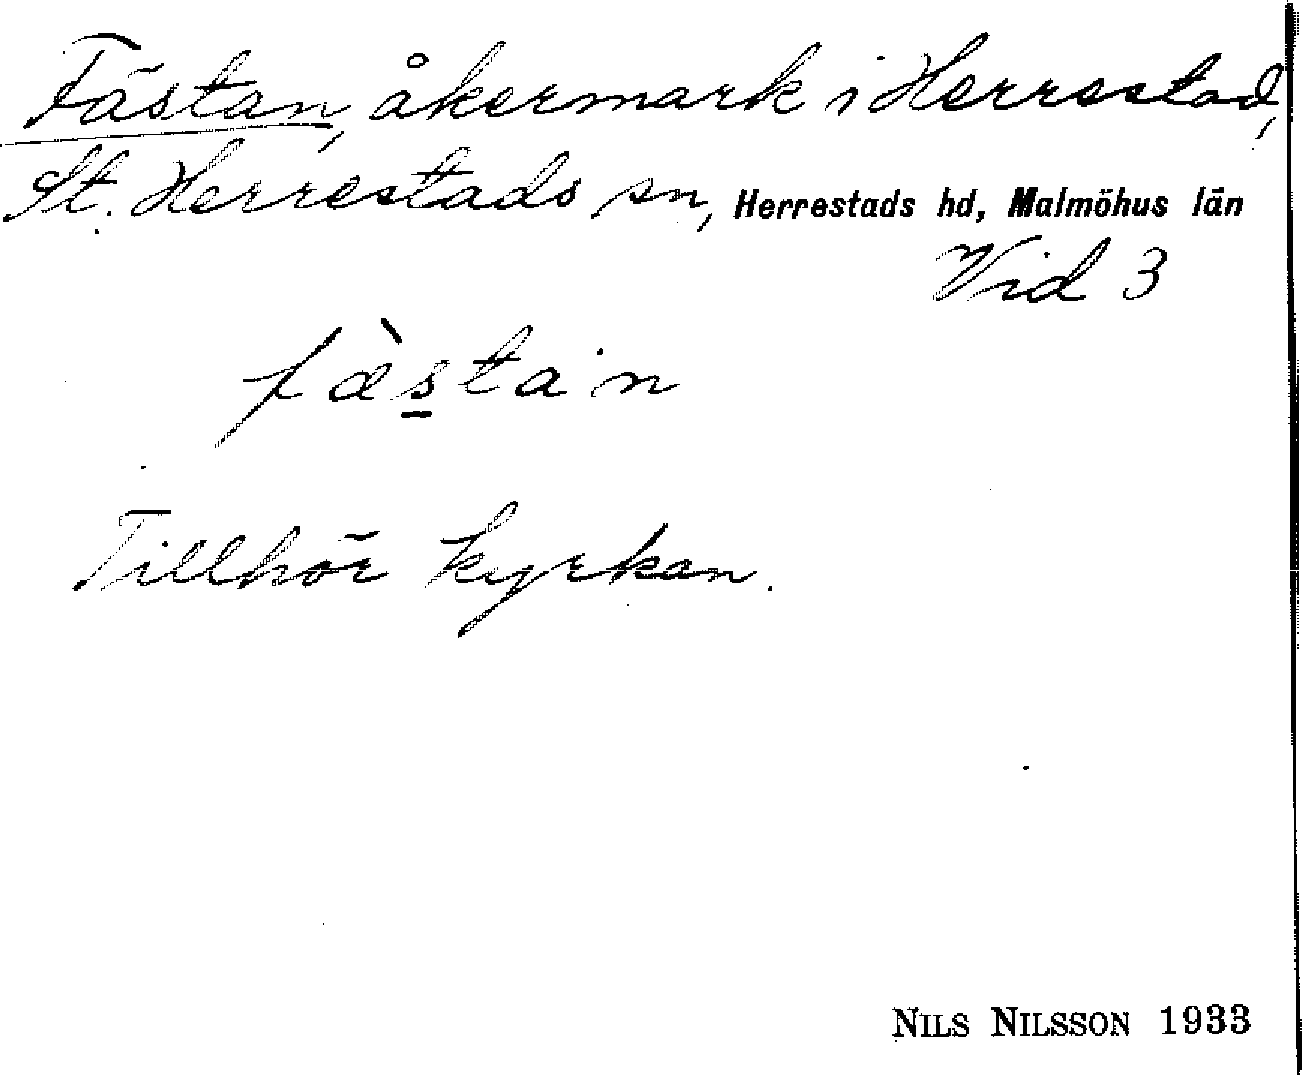 Fästan, åkermark i Herrestad,
St. Herrestads sn, Herrestads hd, Malmöhus län
Vid 3
fæ̀sta·n
Tillhör kyrkan.
NILS NILSSON 1933